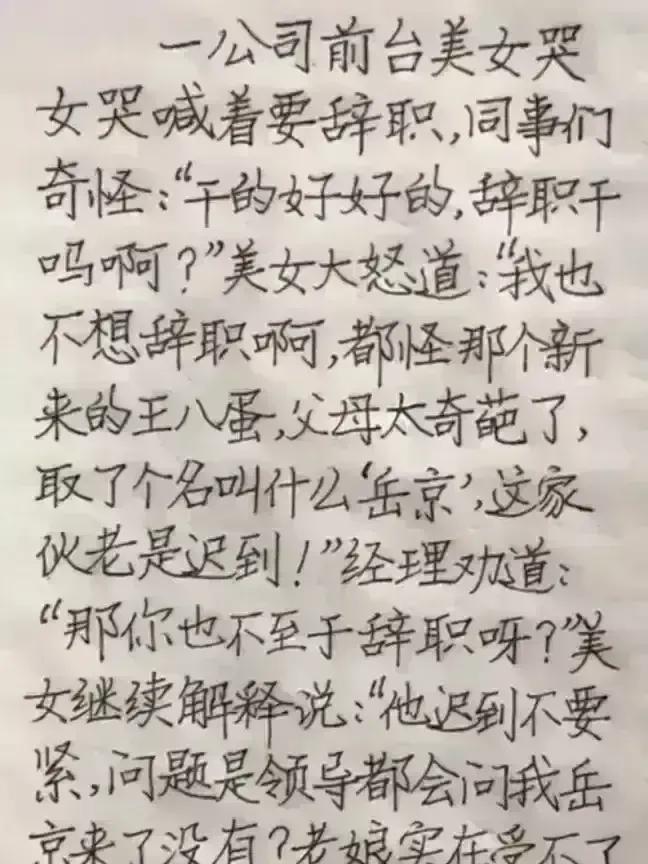 一公司前台美女哭
女哭喊着要辞职,同事们
奇怪:“干的好好的,辞职干
吗啊?”美女大怒道:“我也
不想辞职啊,都怪那个新
来的王八蛋,父母太奇葩了,
取了个名叫什么‘岳京’,这家
伙老是迟到!”经理劝道:
“那你也不至于辞职呀?”美
女继续解释说:“他迟到不要
紧,问题是领导都会问我岳
京来了没有?老娘实在受不了